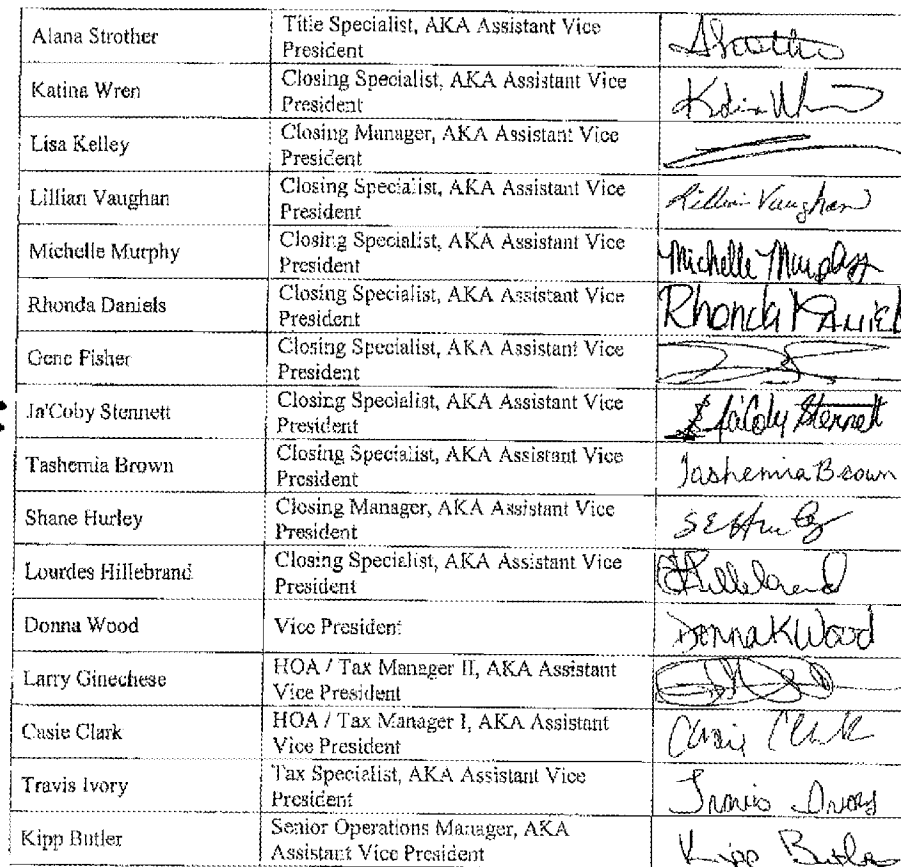 Alana Strother
Title Specialist, AKA Assistant Vice
President
Katina Wren
Closing Specialist, AKA Assistant Vice
President
Lisa Kelley
Closing Manager, AKA Assistant Vice
President
Lillian Vaughan
Closing Specialist, AKA Assistant Vice
President
Lillian Vaughan
Michelle Murphy
Closing Specialist, AKA Assistant Vice
President
Michelle Murphy
Rhonda Daniels
Closing Specialist, AKA Assistant Vice
President
Rhonda
Gene Fisher
Closing Specialist, AKA Assistant Vice
President
Ja'Coby Stennett
Closing Specialist, AKA Assistant Vice
President
Ja'Coby Stennett
Tashemia Brown
Closing Specialist, AKA Assistant Vice
President
Tashemia Brown
Shane Hurley
Closing Manager, AKA Assistant Vice
President
Lourdes Hillebrand
Closing Specialist, AKA Assistant Vice
President
Hillebrand
Donna Wood
Vice President
Donna K Wood
Larry Ginechese
HOA / Tax Manager II, AKA Assistant
Vice President
Casie Clark
HOA / Tax Manager I, AKA Assistant
Vice President
Casie Clark
Travis Ivory
Tax Specialist, AKA Assistant Vice
President
Travis Ivory
Kipp Butler
Senior Operations Manager, AKA
Assistant Vice President
Kipp Butler